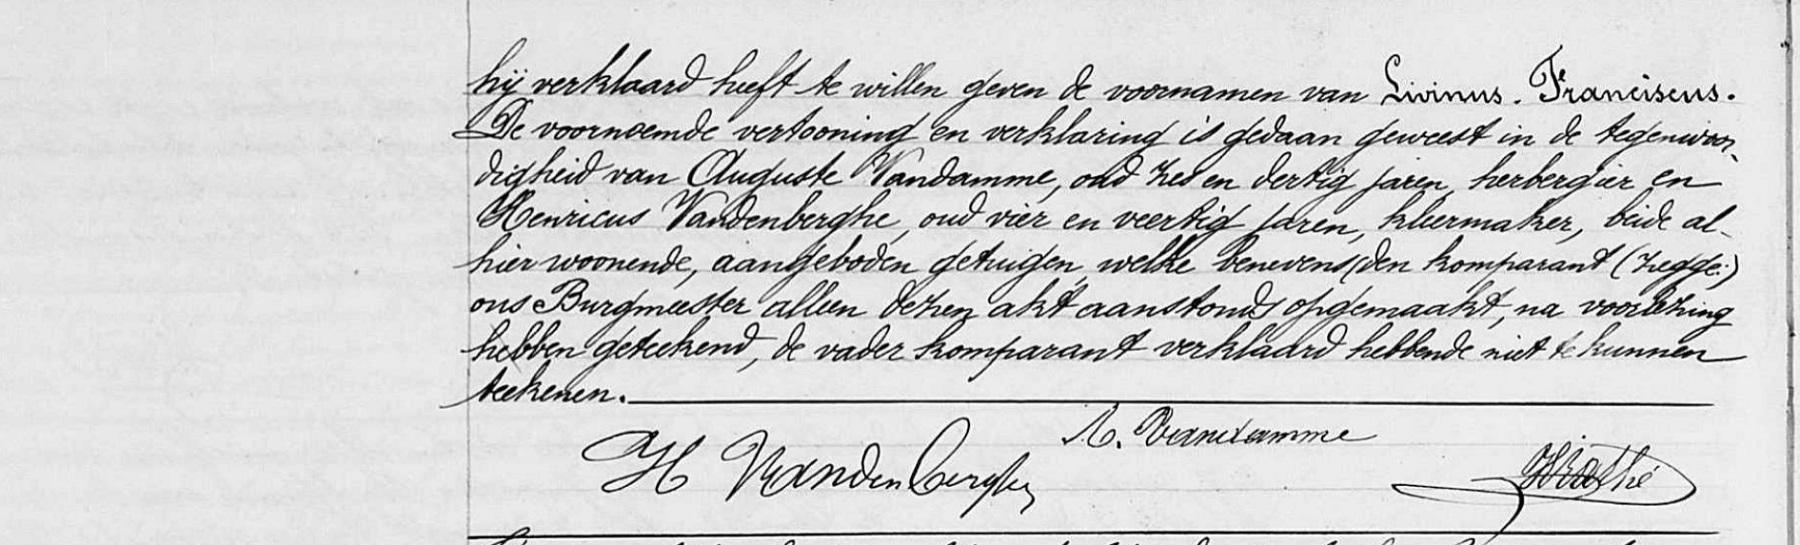 hij verklaard heeft te willen geven de voornamen van Livinus. Franciscus.
De voornoemde vertooning en verklaring is gedaan geweest in de tegenwoor-
digheid van Auguste Vandamme, oud zes en dertig jaren, herbergier en
Henricus Vandenberghe, oud vier en veertig jaren, kleermaker, beide al-
hier woonende, aangeboden getuigen, welke benevens (den komparant (zegge:)
ons Burgmeester alleen dezen akt aanstonds opgemaakt, na voorlezing
hebben geteekend, de vader komparant verklaard hebbende niet te kunnen
teekenen.
A. Vandamme
H Vanden Berghe